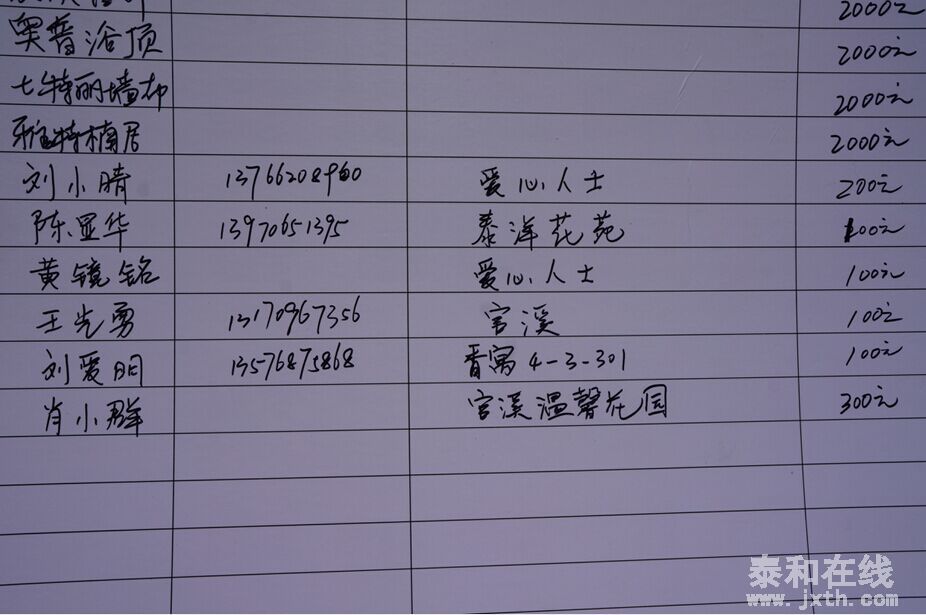 2000元
奥普浴顶 2000元
七特丽墙布 2000元
雅特楠居 2000元
刘小晴 13766208960 爱心人士 200元
陈显华 13970651395 泰洋花苑 100元
黄镜铭 爱心人士 100元
王先勇 13170967356 官溪 100元
刘爱明 13576875868 4-3-301 100元
肖小群 官溪温馨花园 300元
泰和在线
www.jxth.com